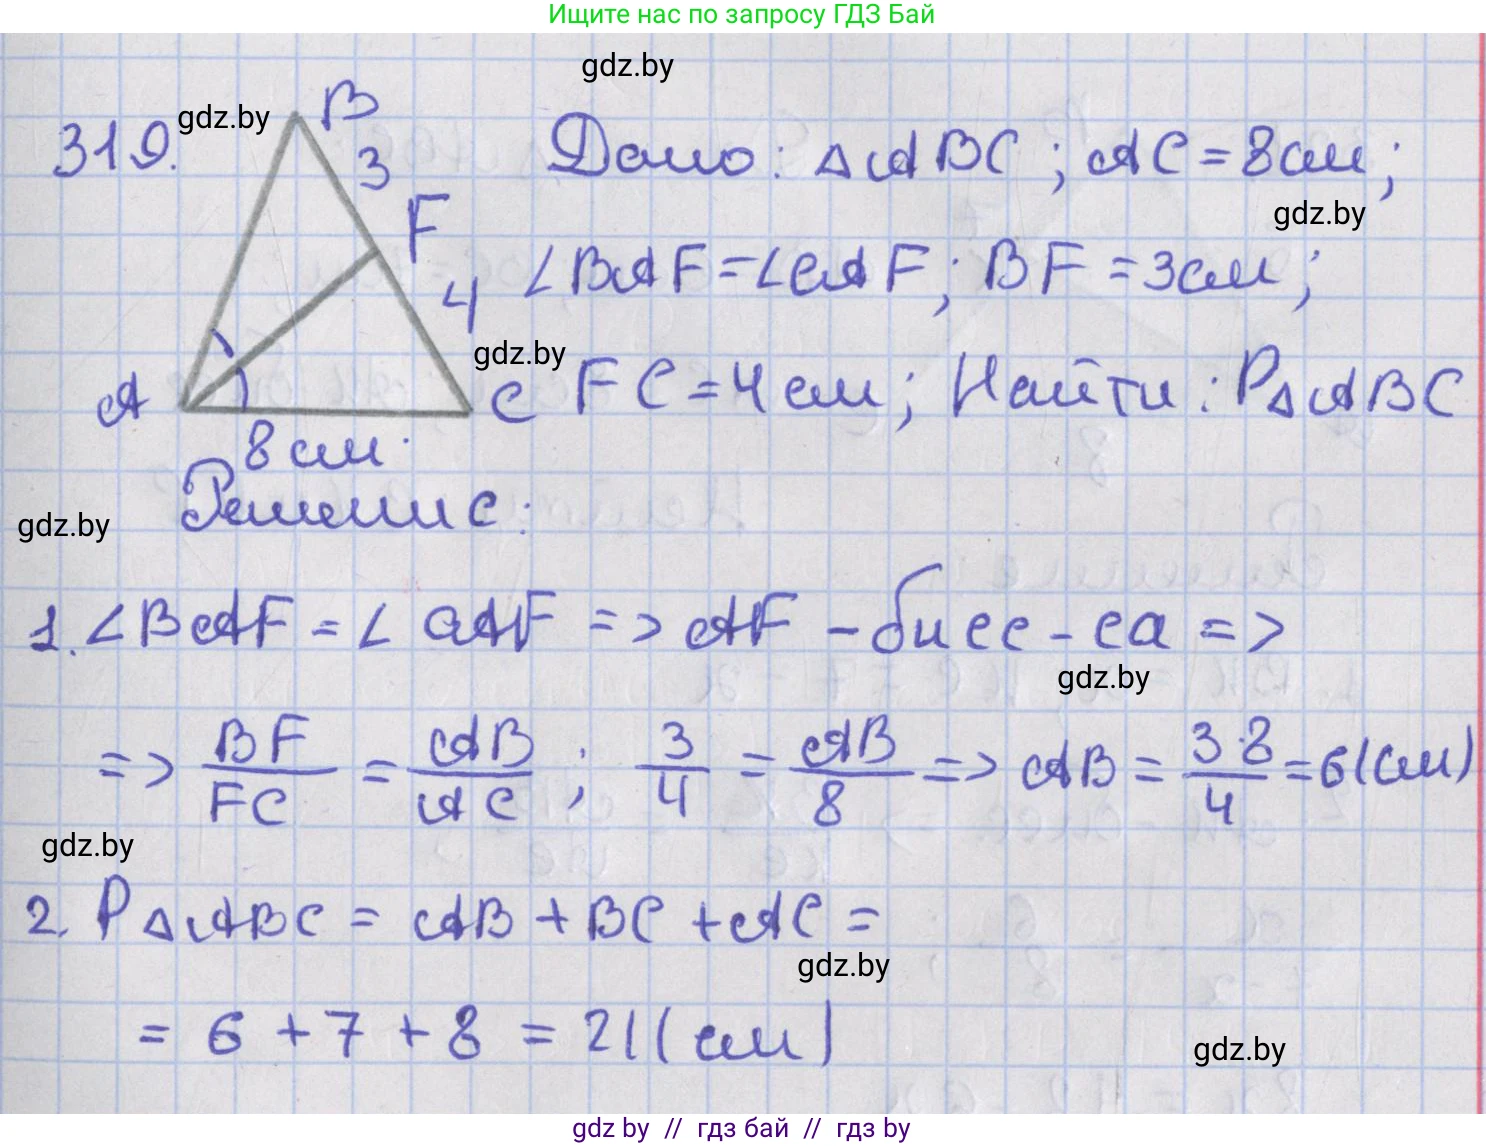 Ищите нас по запросу ГДЗ Бай
gdz.by
319.
gdz.by
B
3
F
4
A
C
8 см.
Дано: △ABC; AC = 8см;
gdz.by
∠BAF = ∠CAF; BF = 3см;
gdz.by
FC = 4 см; Найти: P△ABC
Решение:
gdz.by
1. ∠BAF = ∠CAF => AF - бисс-са =>
gdz.by
=> BF/FC = AB/AC; 3/4 = AB/8 => AB = 3·8/4 = 6(см)
gdz.by
2. P△ABC = AB + BC + AC =
gdz.by
= 6 + 7 + 8 = 21(см)
gdz.by
gdz by // гдз бай // гдз by